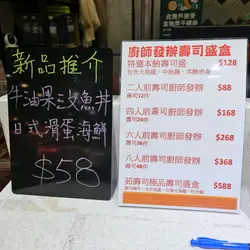 新品推介
牛油果三文魚丼
日式滑蛋海鮮
$58
廚師發辦壽司盛盒
特選本鮪壽司盛 $128
二人前壽司廚師發辦 $88
壽司12件
四人前壽司廚師發辦 $168
壽司24件
六人前壽司廚師發辦 $268
壽司36件
八人前壽司廚師發辦 $368
壽司48件
極品壽司盛盒 $588